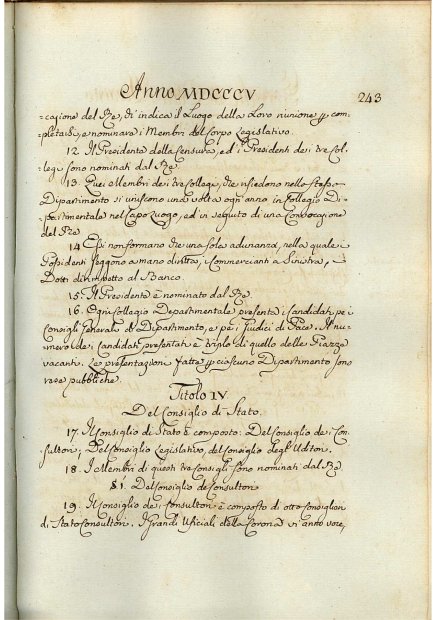 Anno MDCCCV 243
=cazione del Re, di indica il Luogo della Loro riunione p com=
=pletarli, e nominare i Membri del Corpo Legislativo.
12. Il Presidente della Censura, ed i Presidenti dei tre Col=
legj sono nominati dal Re
13. Quei Membri dei tre Collegj, che risiedono nello stesso
Dipartimento si uniscono una volta ogni anno in Collegio Di=
=partimentale nel Capo Luogo, ed in seguito di una Convocazione
del Re
14 Essi non formano che una sola adunanza, nella quale i
Possidenti seggono a mano diritta, i Commercianti a Sinistra, i
Dotti dirimpetto al Banco.
15. Il Presidente è nominato dal Re.
16. Ogni Collegio Dipartimentale presenta i Candidati pei
Consigli Generali di Dipartimento, e pei Giudici di Pace. Il nu=
mero dei Candidati presentati è triplo di quello delle Piazze
vacanti. Le presentazioni fatte p ciascuno Dipartimento sono
rese pubbliche.
Titolo IV
Del Consiglio di Stato.
17. Il Consiglio di Stato è composto: Del Consiglio dei Con=
sultori, Del Consiglio Legislativo, del Consiglio degli Uditori.
18. I Membri di questi tre Consigli sono nominati dal Re
§ 1. Del Consiglio de Consultori
19. Il Consiglio dei Consultori è composto di otto Consiglieri
di Stato Consultori. I Grandi Uficiali della Corona vi anno voce,